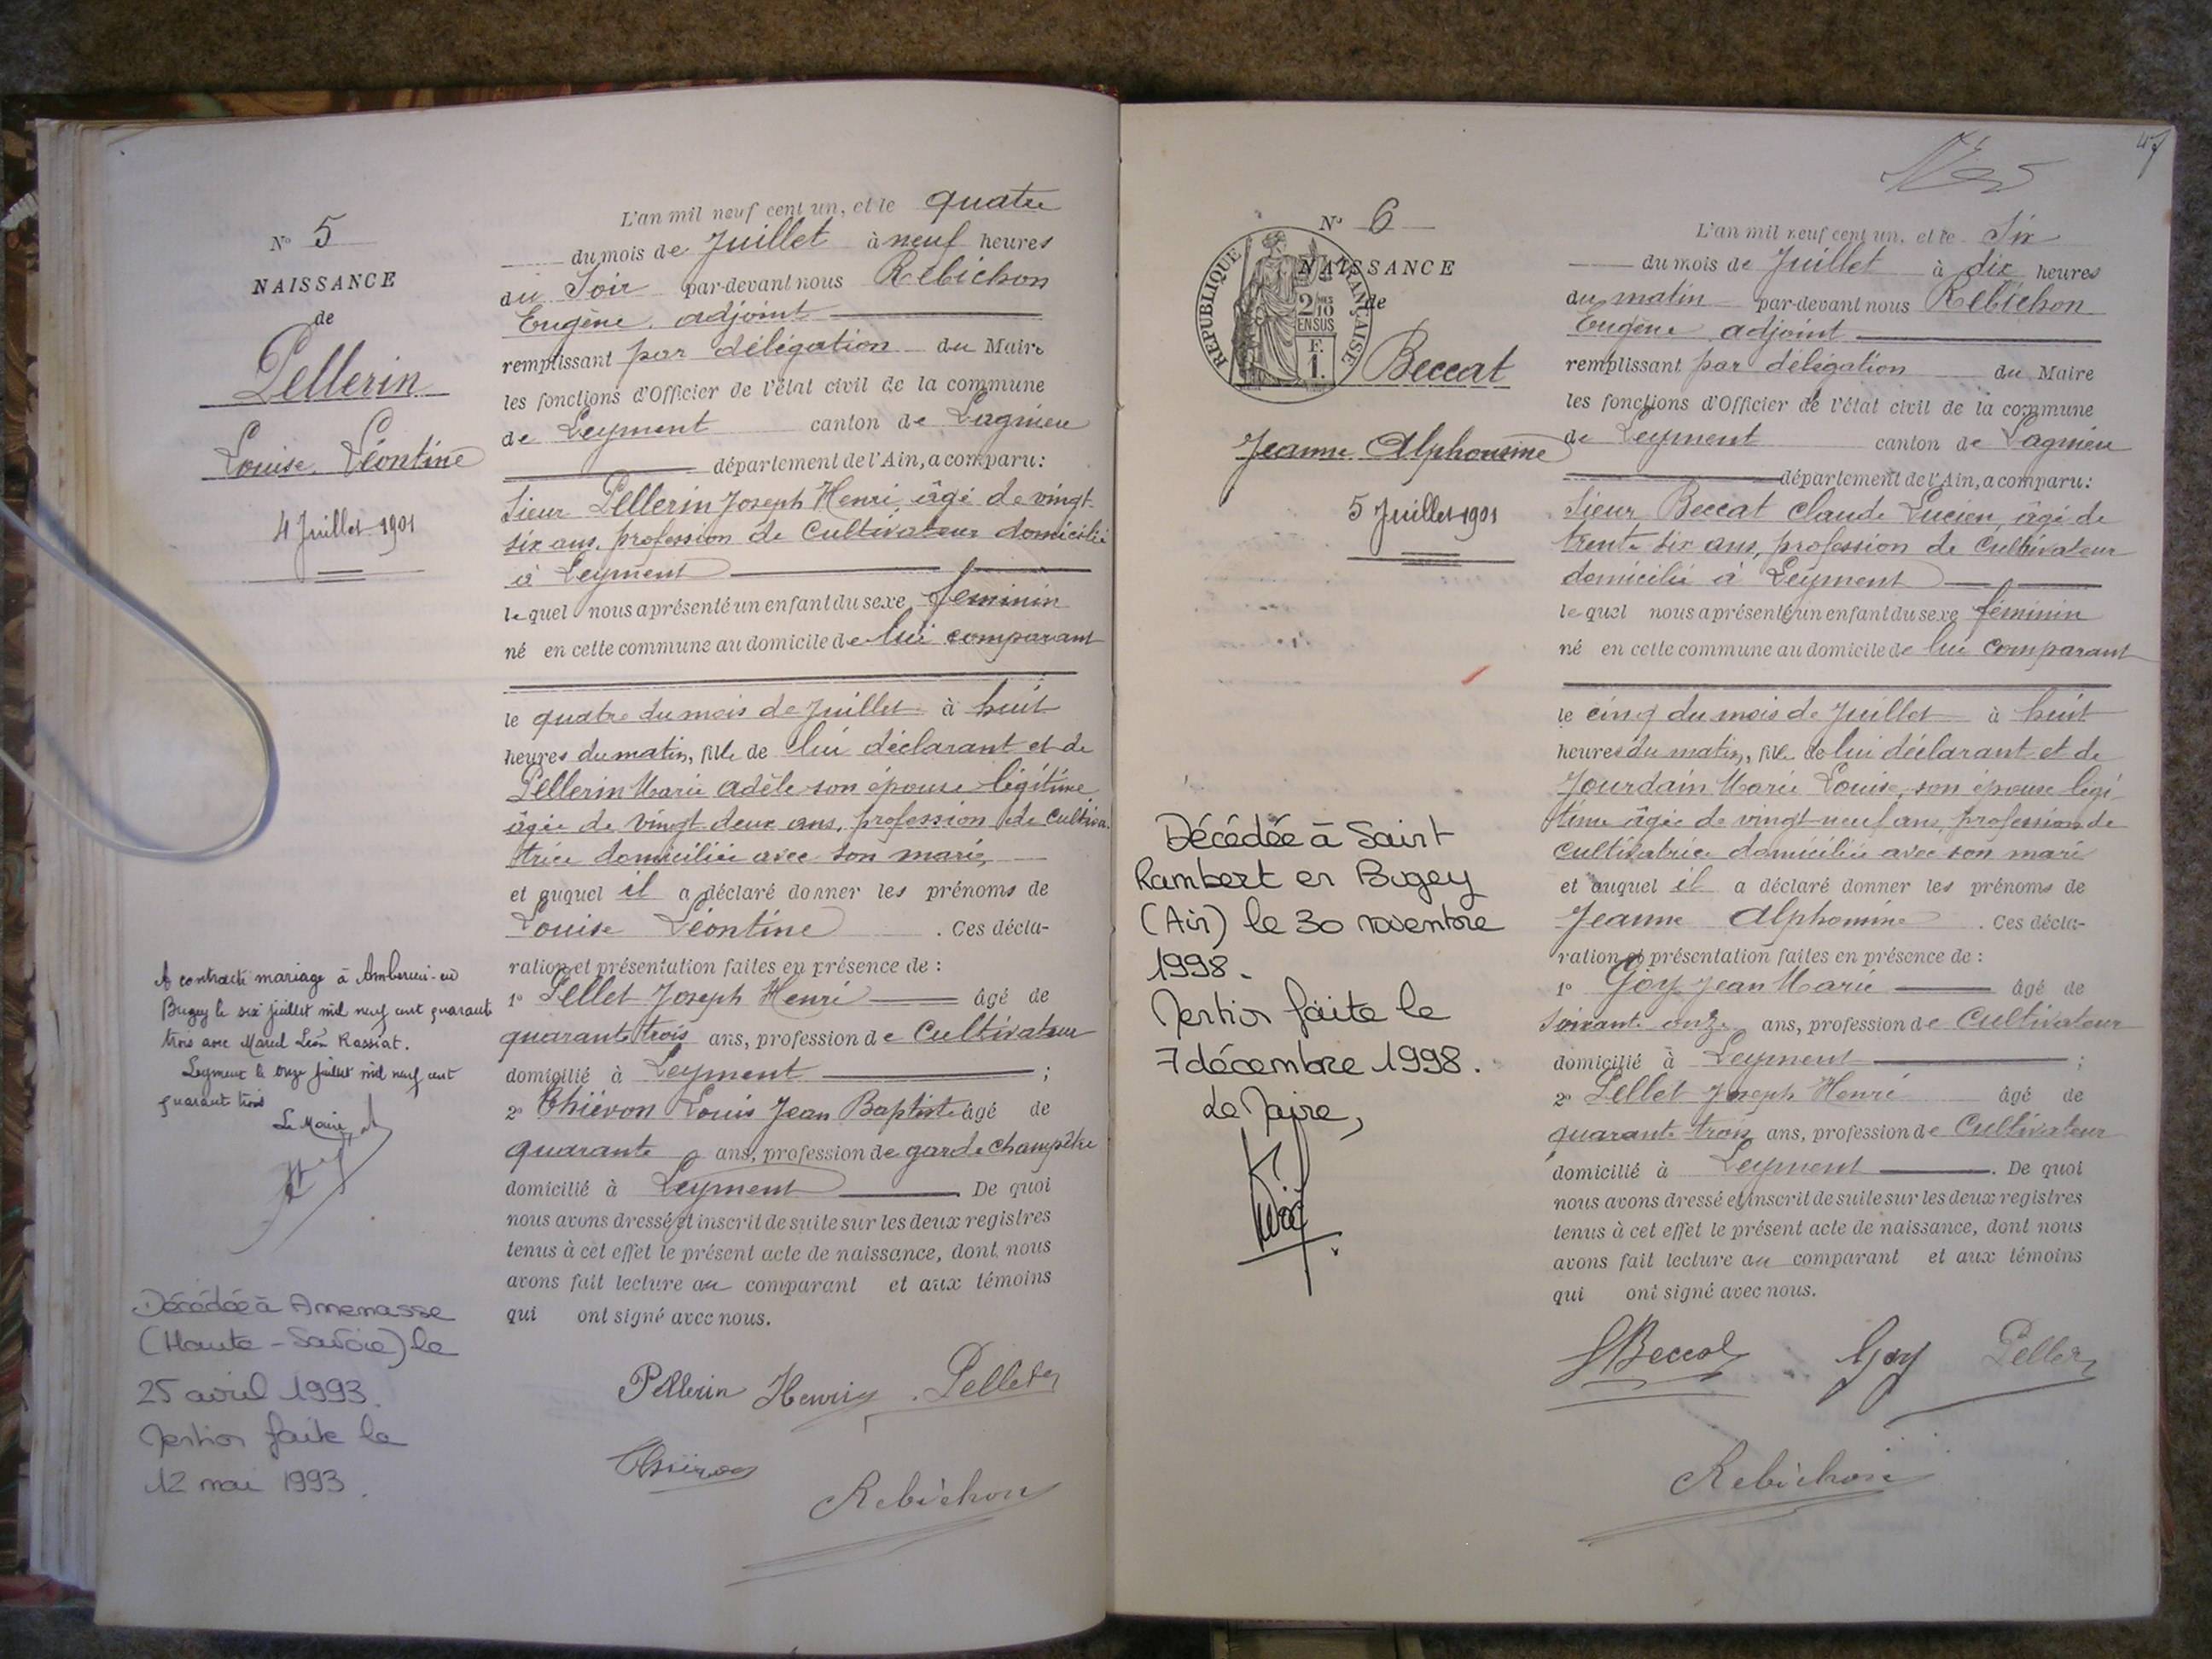 N° 5
NAISSANCE
de
Pellerin
Louise Léontine
4 Juillet 1901
A contracté mariage à Ambérieu-en
Bugey le six juillet mil neuf cent quarante
trois avec Marcel Léon Rassiat.
Leyment le onze juillet mil neuf cent
quarante trois
Le Maire,
Décédée à Annemasse
(Haute-Savoie) le
25 avril 1993.
Mention faite le
12 mai 1993.
L'an mil neuf cent un, et le quatre
du mois de Juillet à neuf heures
du Soir par-devant nous Rebichon
Eugène, adjoint
remplissant par délégation du Maire
les fonctions d'Officier de l'état civil de la commune
de Leyment canton de Lagnieu
département de l'Ain, a comparu:
Sieur Pellerin Joseph Henri, âgé de vingt
six ans, profession de Cultivateur domicilié
à Leyment
lequel nous a présenté un enfant du sexe féminin
né en cette commune au domicile de lui comparant
le quatre du mois de Juillet à huit
heures du matin, fille de lui déclarant et de
Pellerin Marie Adèle son épouse légitime
âgée de vingt deux ans, profession de cultiva
trice domiciliée avec son mari,
et auquel il a déclaré donner les prénoms de
Louise Léontine. Ces décla-
ration et présentation faites en présence de :
1° Pellet Joseph Henri âgé de
quarante trois ans, profession de Cultivateur
domicilié à Leyment ;
2° Thiévon Louis Jean Baptiste âgé de
quarante ans, profession de garde champêtre
domicilié à Leyment. De quoi
nous avons dressé et inscrit de suite sur les deux registres
tenus à cet effet le présent acte de naissance, dont nous
avons fait lecture au comparant et aux témoins
qui ont signé avec nous.
Pellerin Henri Pellet
Thiévon
Rebichon
47
N° 6
NAISSANCE
de
RÉPUBLIQUE FRANÇAISE
2/10
EN SUS
F.
1.
Beccat
Jeanne Alphonsine
5 Juillet 1901
Décédée à Saint
Rambert en Bugey
(Ain) le 30 novembre
1998.
Mention faite le
7 décembre 1998.
Le Maire,
L'an mil neuf cent un, et le Six
du mois de Juillet à dix heures
du matin par-devant nous Rebichon
Eugène, adjoint
remplissant par délégation du Maire
les fonctions d'Officier de l'état civil de la commune
de Leyment canton de Lagnieu
département de l'Ain, a comparu:
Sieur Beccat Claude Lucien, âgé de
trente six ans, profession de Cultivateur
domicilié à Leyment
lequel nous a présenté un enfant du sexe féminin
né en cette commune au domicile de lui comparant
le cinq du mois de Juillet à huit
heures du matin, fille de lui déclarant et de
Jourdain Marie Louise, son épouse légi
time âgée de vingt-neuf ans, profession de
cultivatrice domiciliée avec son mari
et auquel il a déclaré donner les prénoms de
Jeanne Alphonsine. Ces décla-
ration et présentation faites en présence de :
1° Goy Jean Marie âgé de
soixante onze ans, profession de Cultivateur
domicilié à Leyment ;
2° Pellet Joseph Henri âgé de
quarante trois ans, profession de Cultivateur
domicilié à Leyment. De quoi
nous avons dressé et inscrit de suite sur les deux registres
tenus à cet effet le présent acte de naissance, dont nous
avons fait lecture au comparant et aux témoins
qui ont signé avec nous.
Beccat Goy Pellet
Rebichon